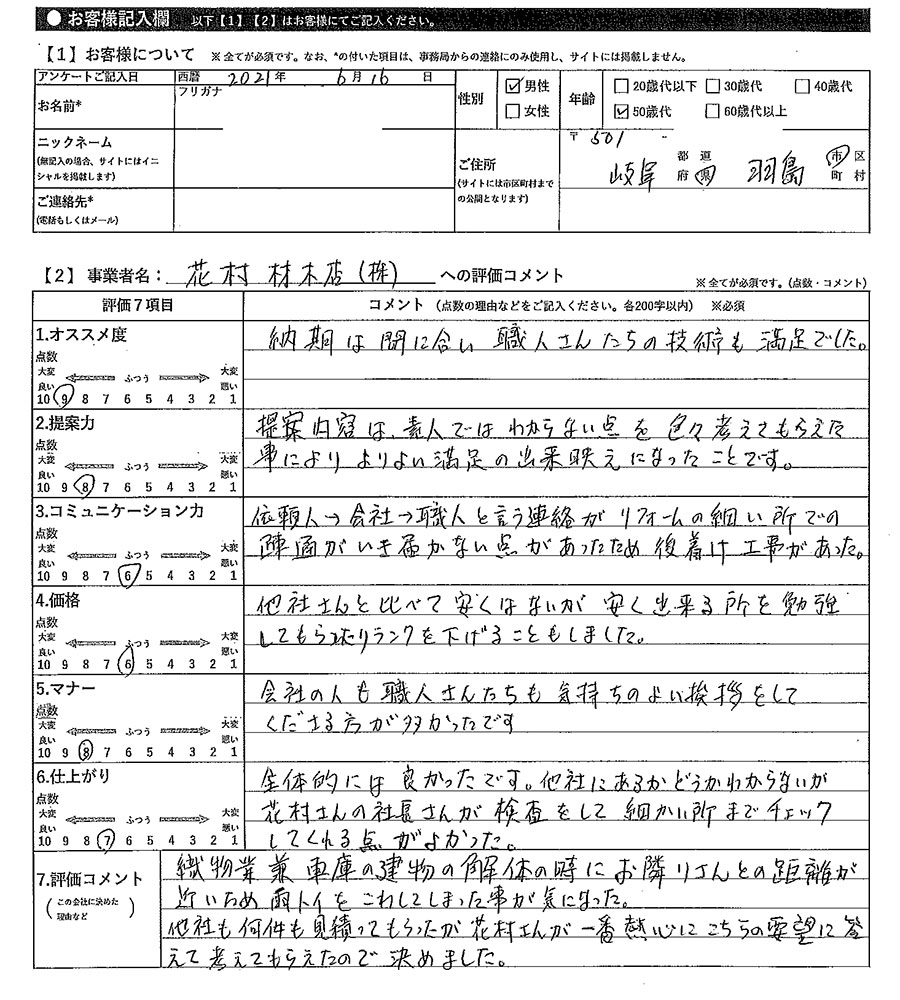 ● お客様記入欄 以下【1】【2】はお客様にてご記入ください。
【1】お客様について ※全てが必須です。なお、*の付いた項目は、事務局からの連絡にのみ使用し、サイトには掲載しません。
アンケートご記入日 西暦 2021年 6月16日
お名前* フリガナ
性別 ☑男性 □女性
年齢 □20歳代以下 □30歳代 □40歳代
☑50歳代 □60歳代以上
ニックネーム
(無記入の場合、サイトにはイニシャルを掲載します)
ご連絡先*
(電話もしくはメール)
ご住所
(サイトには市区町村までの公開となります)
〒501-
岐阜 都道府県 羽島 市区町村
【2】事業者名: 花村材木店(株) への評価コメント
※全てが必須です。(点数・コメント)
評価7項目 コメント(点数の理由などをご記入ください。各200字以内) ※必須
1.オススメ度
点数
大変良い ふつう 大変悪い
10 9 8 7 6 5 4 3 2 1
納期は間に合い 職人さんたちの技術も満足でした。
2.提案力
点数
大変良い ふつう 大変悪い
10 9 8 7 6 5 4 3 2 1
提案内容は、素人ではわからない点を色々考えてもらえた
事により よりよい満足の出来映えになったことです。
3.コミュニケーション力
点数
大変良い ふつう 大変悪い
10 9 8 7 6 5 4 3 2 1
依頼人→会社→職人と言う連絡がリフォームの細い所での
疎通がいき届かない点があったため 後着け工事があった。
4.価格
点数
大変良い ふつう 大変悪い
10 9 8 7 6 5 4 3 2 1
他社さんと比べて安くはないが 安く出来る所を勉強
してもらったりランクを下げることもしました。
5.マナー
点数
大変良い ふつう 大変悪い
10 9 8 7 6 5 4 3 2 1
会社の人も職人さんたちも気持ちのよい挨拶をして
くださる方が多かったです
6.仕上がり
点数
大変良い ふつう 大変悪い
10 9 8 7 6 5 4 3 2 1
全体的には良かったです。他社にあるかどうかわからないが
花村さんの社長さんが検査をして細かい所までチェック
してくれる点がよかった。
7.評価コメント
(この会社に決めた理由など)
織物業兼車庫の建物の解体の時にお隣りさんとの距離が
近いため雨トイをこわしてしまった事が気になった。
他社も何件も見積ってもらったが花村さんが一番熱心にこちらの要望に答
えて考えてもらえたので決めました。